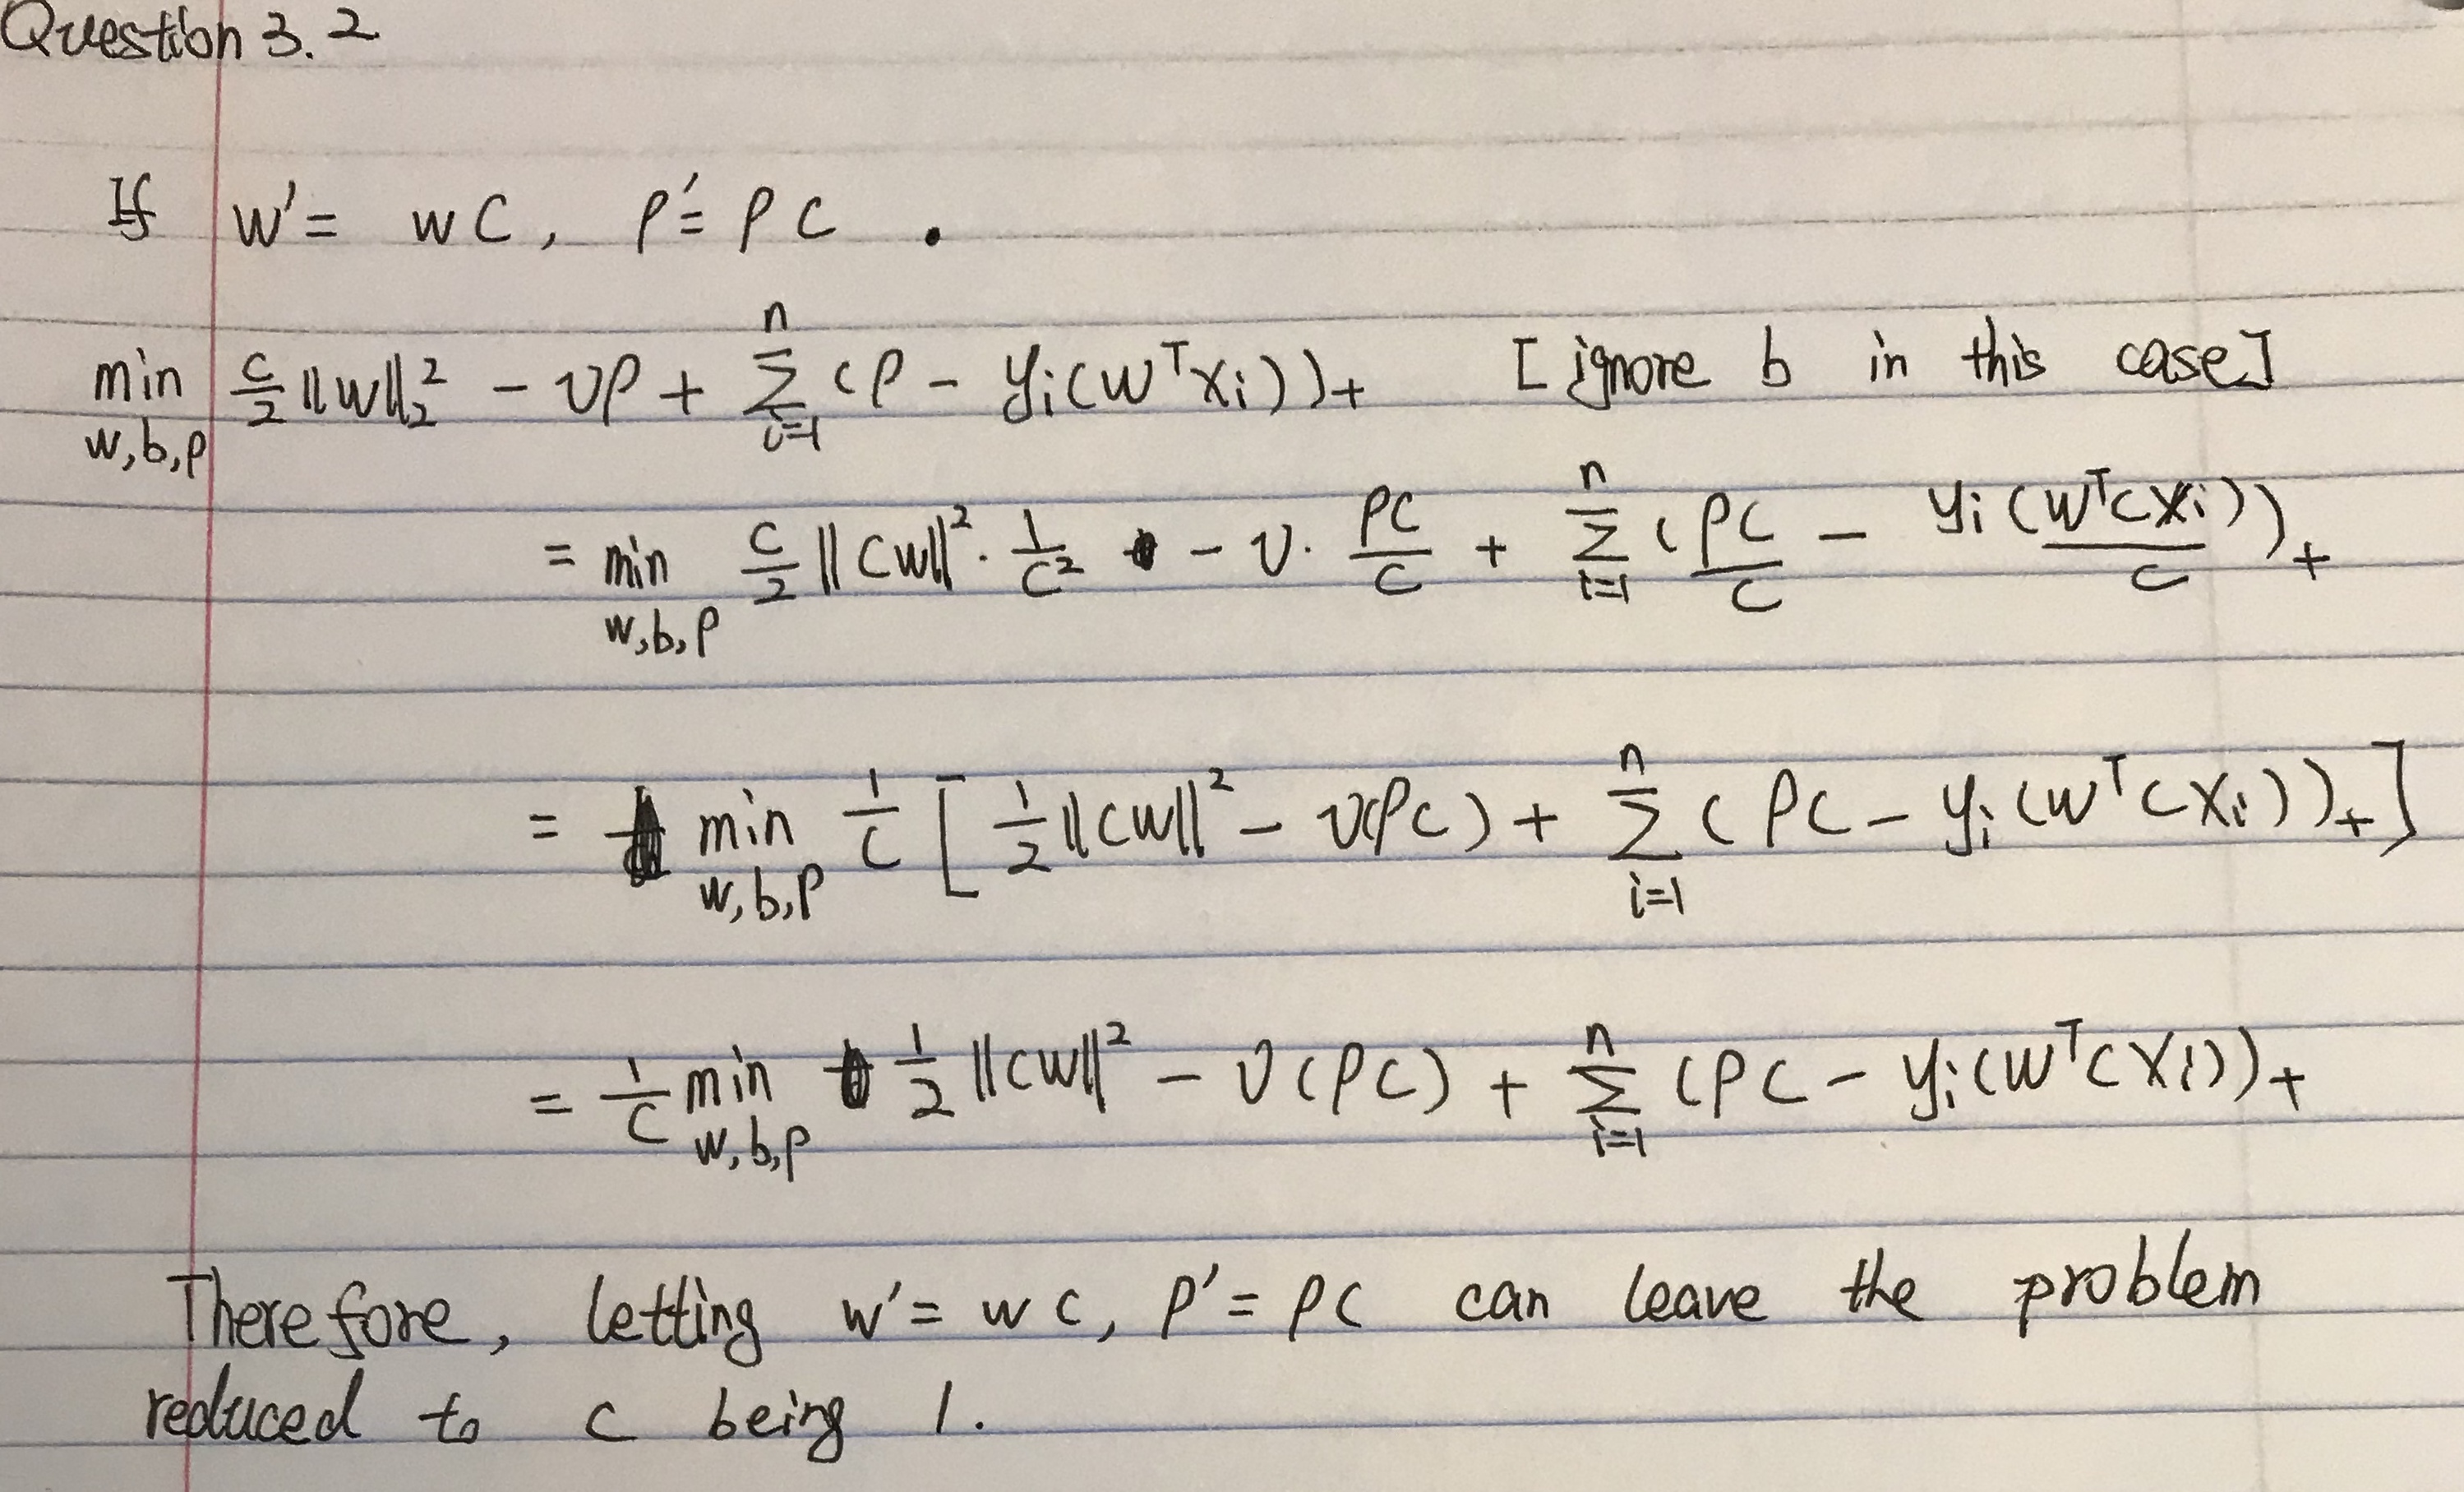 Question 3.2
If w' = wC, ρ' = ρC .
min_{w,b,ρ} C/2 ||w||₂² - νρ + Σ_{i=1}^{n} (ρ - yᵢ(wᵀxᵢ))₊ [ignore b in this case]
= min_{w,b,ρ} C/2 ||Cw||² · 1/C² - ν · ρC/C + Σ_{i=1}^{n} (ρC/C - yᵢ(wᵀCxᵢ)/C)₊
= min_{w,b,ρ} 1/C [ 1/2 ||Cw||² - ν(ρC) + Σ_{i=1}^{n} (ρC - yᵢ(wᵀCxᵢ))₊ ]
= 1/C min_{w,b,ρ} 1/2 ||Cw||² - ν(ρC) + Σ_{i=1}^{n} (ρC - yᵢ(wᵀCxᵢ))₊
Therefore, letting w' = wC, ρ' = ρC can leave the problem
reduced to C being 1.